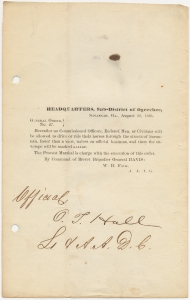 HEADQUARTERS, Sub-District of Ogeechee,
SAVANNAH, GA., August 1865.
GENERAL ORDERS,
No.
Hereafter no Commissioned Officer, Enlisted Man, or Citizen will be
allowed to drive or ride their horses through the streets of Savan-
nah, faster than a trot, unless on official business, and then the en-
velope will be marked
The Provost Marshal is charge with the execution of this order.
By Command of Brevet Brigadier General DAVIS:
W. H.
A. A. A. G.
Official
O. T. Hall
Lt & A. A. D. C.